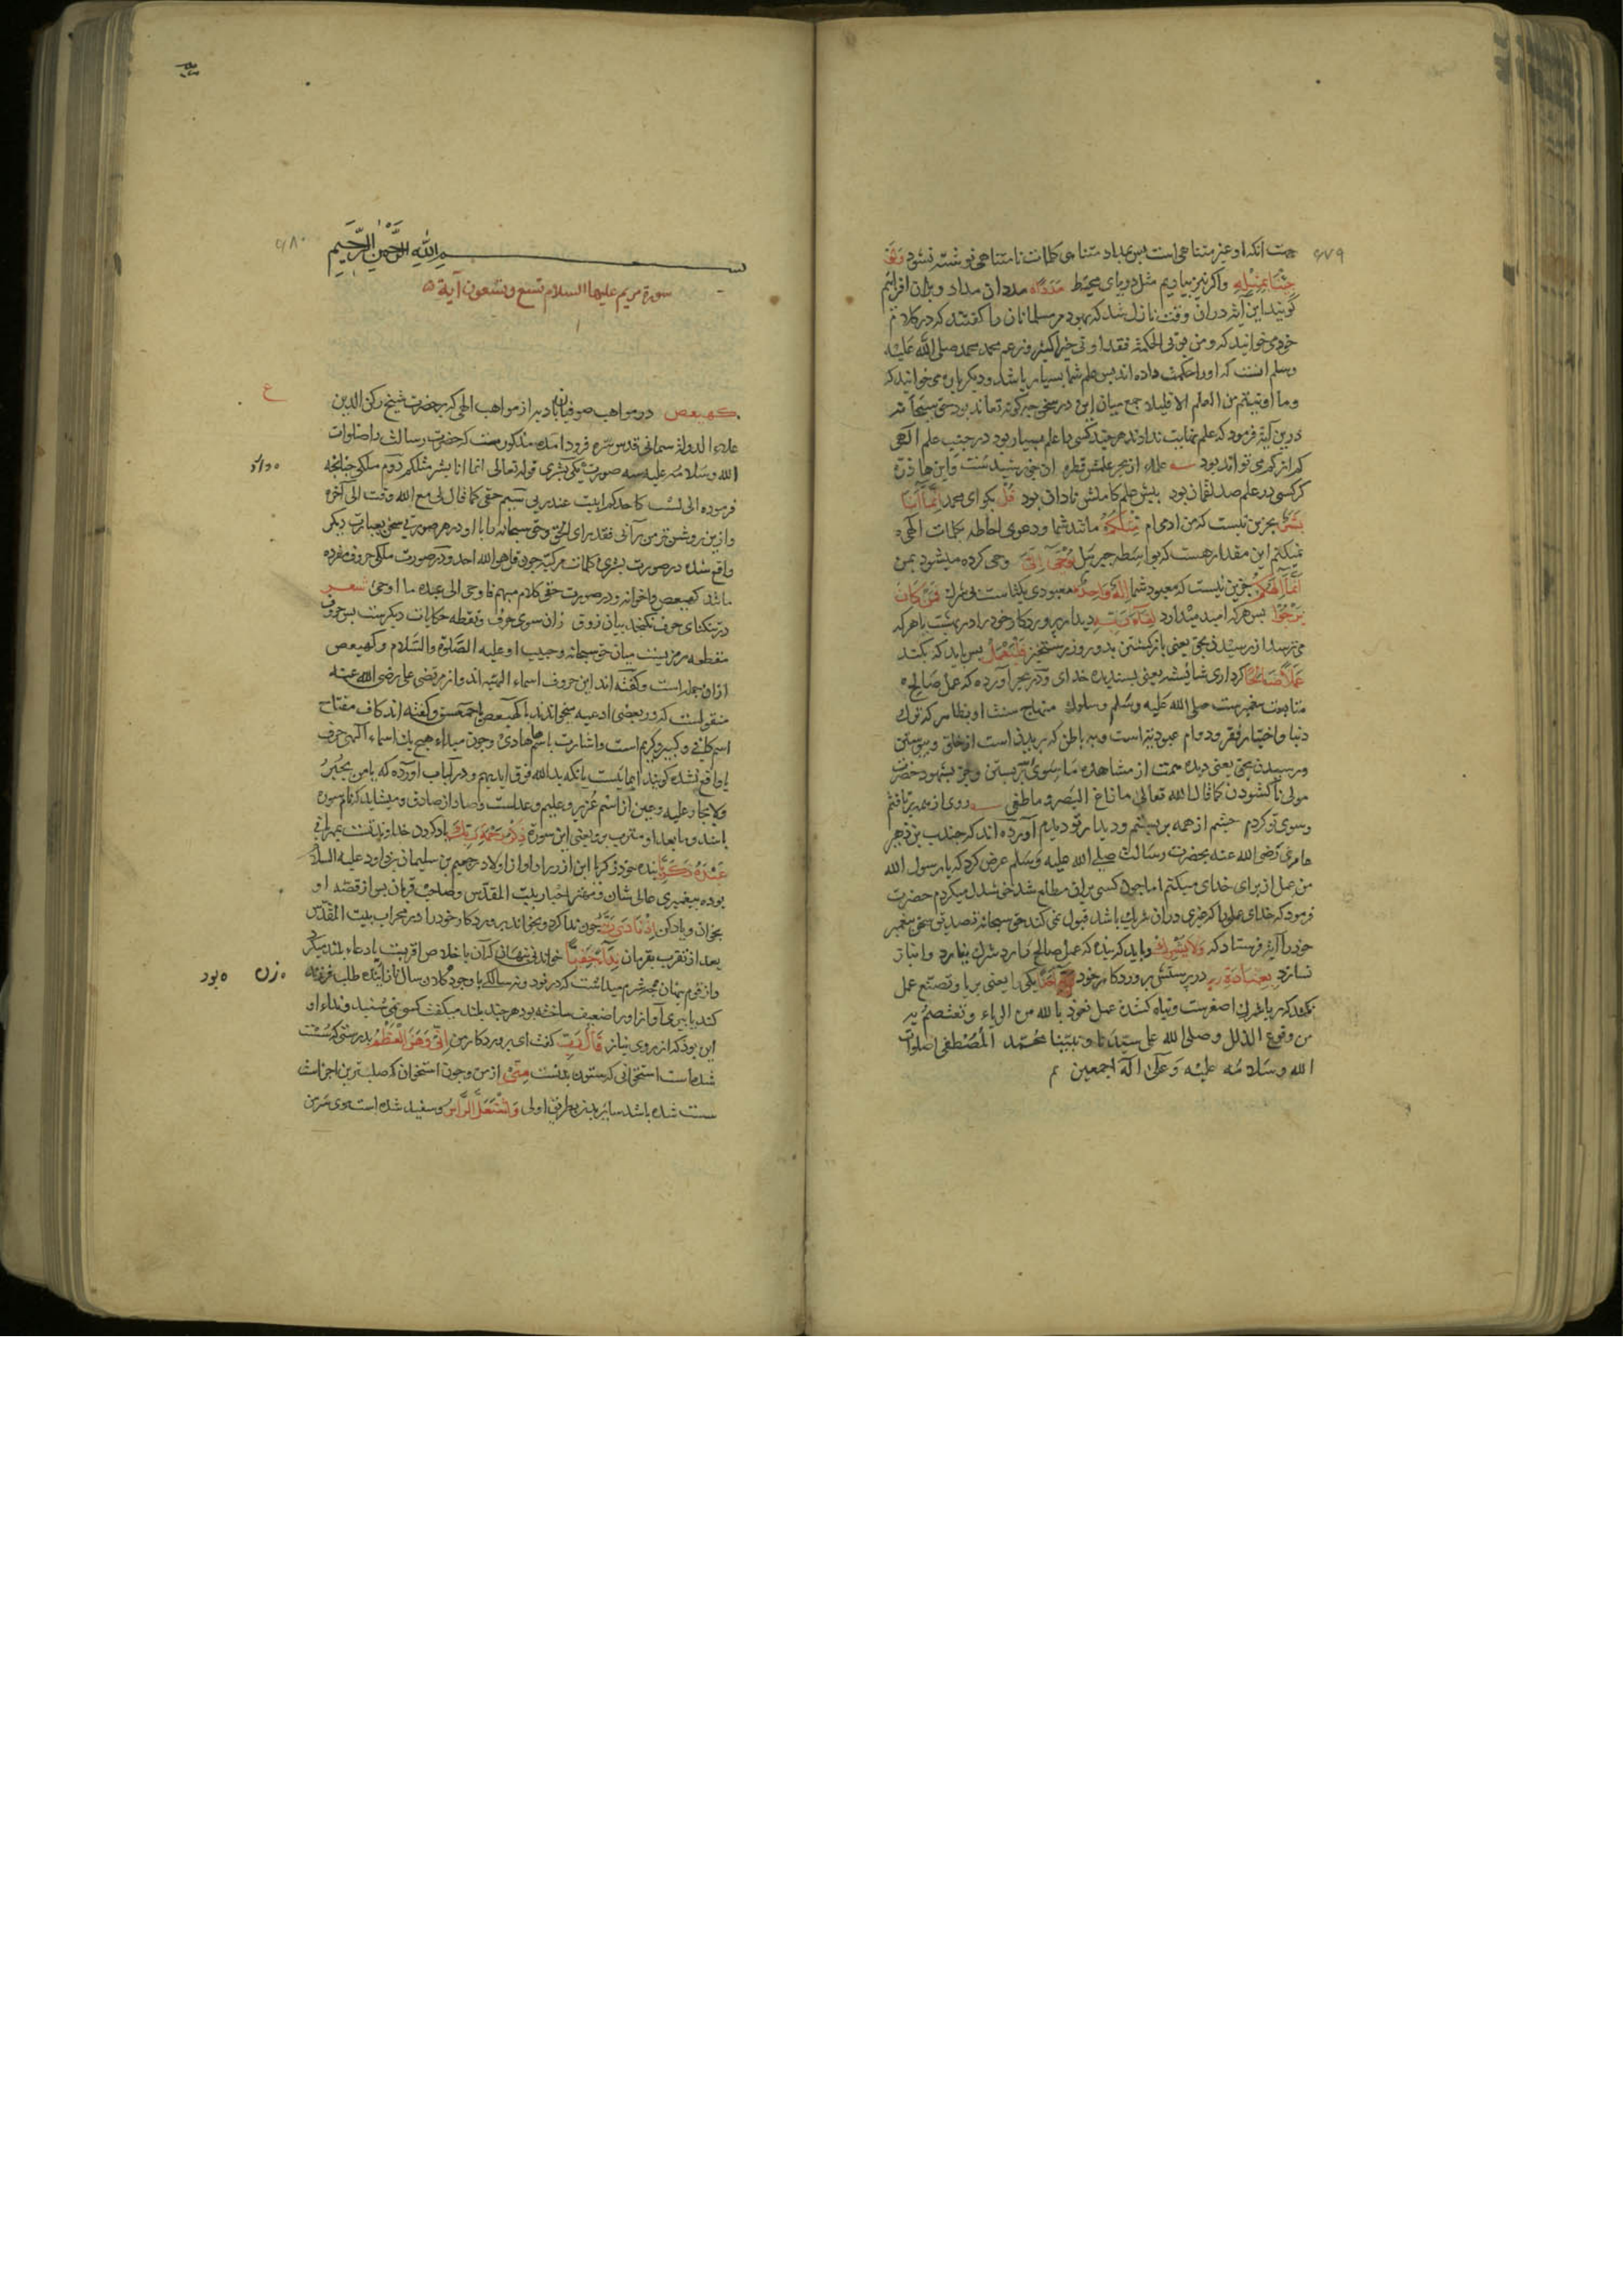 جهت انکه او غیر متناهی است پس بمداد متناهی کلمات نامتناهی نوشته نشود ولو
جئنا بمثله واکر نیز بیاریم مثل دریای محیط مددا مددان مداد وبران افزائیم
کویند این آیت دران وقت نازل شد که یهود مر مسلمانان را کفتند که در کلام
خود می خوانید که ومن یوتی الحکمة فقد اوتی خیرا کثیرا وزعم محمد صلی الله علیه
وسلم انست که او را حکمت داده اند پس علم شما بسیار باشد ودیکر باره می خوانید که
وما اوتیتم من العلم الا قلیلا جمع میان این در سخن چه کونه تواند بود حق سبحانه
درین آیة فرمود که علم نهایت ندارد هرچند کسی را علم بسیار بود در جنب علم الهی
کم از کمی تواند بود
کر کسی در علم صد لقمان بود پیش علم کاملش نادان بود قل بکوای محمد انما انا
بشر جزین نیست که من ادمی ام مثلکم مانند شما ودعوی احاطه بکلمات الهی
نمیکنم این مقدار هست که بواسطه جبرئیل یوحی الی وحی کرده میشود بمن
انما الهکم جزین نیست که معبود شما اله واحد معبودی یکتاست بی شرک فمن کان
یرجوا پس هرکه امید میدارد لقاء ربه دیدار پروردکار خود را در بهشت یا هرکه
می ترسد از رسیدن بحق یعنی بازکشتن بدو روز رستخیز فلیعمل پس باید که بکند
عملا صالحا کرداری شائسته یعنی پسندیده خدای ودر بحر آورده که عمل صالح
متابعت پیغمبرست صلی الله علیه وسلم وسلوک منهاج سنت او بظاهر که ترک
دنیا واختیار فقر ودوام عبودیتست وبباطن که بریدن است از خلق وپیوستن
ورسیدن بحق یعنی دیده همت از مشاهده ما سوی بستن وجز بشهود حضرت
مولی ناکشودن کما قال الله تعالی ما زاغ البصر وما طغی روی از همه بر تافتم
وسوی تو کردم چشم از همه بر بستم ودیدار تو دیدم آورده اند که جندب بن زهیر
عامری رضی الله عنه بحضرت رسالت صلی الله علیه وسلم عرض کرد که یا رسول الله
من عمل از برای خدای میکنم اما چون کسی بران مطلع شد خوشدل میکردم حضرت
فرمود که خدای عملی را که غیری دران شریک باشد قبول نمی کند حق سبحانه تصدیق سخن پیغمبر
خود را آیت فرستاد که ولا یشرک وباید که بنده که عمل صالح دارد شرک نیارد وانباز
نسازد بعبادة ربه در پرستش پروردکار خود احدا یکی را یعنی بریا وتصنع عمل
نکند که ریا شرک اصغرست وتباه کننده عمل نعوذ بالله من الریاء ونعتصم به
من وقوع الذلل وصلی الله علی سیدنا ونبینا محمد المصطفی صلوات
الله وسلامه علیه وعلی آله اجمعین تم
بسم الله الرحمن الرحیم
سورة مریم علیها السلام تسع وتسعون آیة
کهیعص در مواهب صوفیان از مواهب الهی که بر حضرت شیخ رکن الدین
علاء الدولة سمنانی قدس سره فرود امده مذکورست که حضرت رسالت را صلوات
الله وسلامه علیه سه صورت یکی بشری قوله تعالی انما انا بشر مثلکم دوم ملکی چنانچه
فرموده انی لست کاحدکم ابیت عند ربی سیم حقی کما قال لی مع الله وقت الی آخره
وازین روشن تر من رآنی فقد رای الحق وحق سبحانه را با او در هر صورتی سخن بعبارت دیکر
واقع شده در صورت بشری کلمات مرکبه چون قل هو الله احد ودر صورت ملکی حروف مفرده
مانند کهیعص واخواته ودر صورت حقی کلام مبهم فاوحی الی عبده ما اوحی شعر
در تنکنای حرف نکنجد بیان ذوق زان سوی حرف ونقطه حکایات دیکرست پس حروف
مقطعه رمزیست میان حق سبحانه وحبیب او علیه الصلوة والسلام وکهیعص
ازان جمله است وکفته اند این حروف اسماء الهیه اند واز مرتضی علی رضی الله عنه
منقولست که در بعضی ادعیه میخواندند یا کهیعص یا حمعسق وکفته اند کاف مفتاح
اسم کافی وکبیر وکریم است وها اشارت باسم هادی وچون مبداء هیچ یک اسماء الهی حرف
یا واقع نشده کویند ایماییست بانکه ید الله فوق ایدیهم ودر لباب آورده که یا من یجیر
ولا یجار علیه وعین از اسم عزیز وعلیم وعدلست وصاد از صادق ومیشاید که نام سوره
باشد وما بعد او مترتب برو یعنی این سوره ذکر رحمة ربک یاد کردن خداوند تست بمهربانی
عبده زکریا بنده خود زکریا ابن ازر را واو از اولاد رجعیم بن سلیمان بن داود علیه السلام
بوده پیغمبری عالی شان ومهتر احبار بیت المقدس وصاحب قربان پس از قصه او
بخوان ویاد کن اذ نادی ربه چون ندا کرد وبخواند پروردکار خود را در محراب بیت المقدس
بعد از تقرب بقربان نداء خفیا خواندنی نهان که آن باخلاص اقربست یا دعاء بلند میکرد
واز قوم پنهان شرم میداشت که در نود ونه سالکی باوجود سال نازاینده طلب فرزند
کند یا پیری آواز او را ضعیف ساخته بود هرچند بلند میکفت کسی نمی شنید ونداء او
این بود که از روی نیاز قال رب کفت ای پروردکار من انی وهن العظم بدرستی که سست
شده است استخوانی که ستون بدنست منی از من وچون استخوان که صلب ترین اجزاست
سست شده باشد سایر بدن بطریق اولی واشتعل الراس وسفید شده است موی سر من